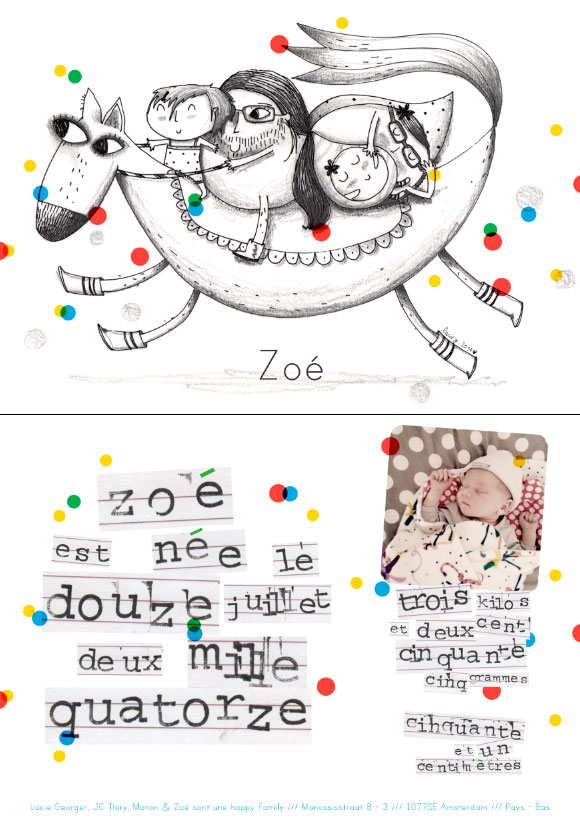 Zoé
zoé
est née le
douze juillet
deux mille
quatorze
trois kilos
et deux cent
cinquante
cinq grammes
cinquante
et un
centimètres
Lucie Georger, JC Thiry, Manon & Zoé sont une happy Family /// Manossistraat 8 - 3 /// 1077SE Amsterdam /// Pays - Bas